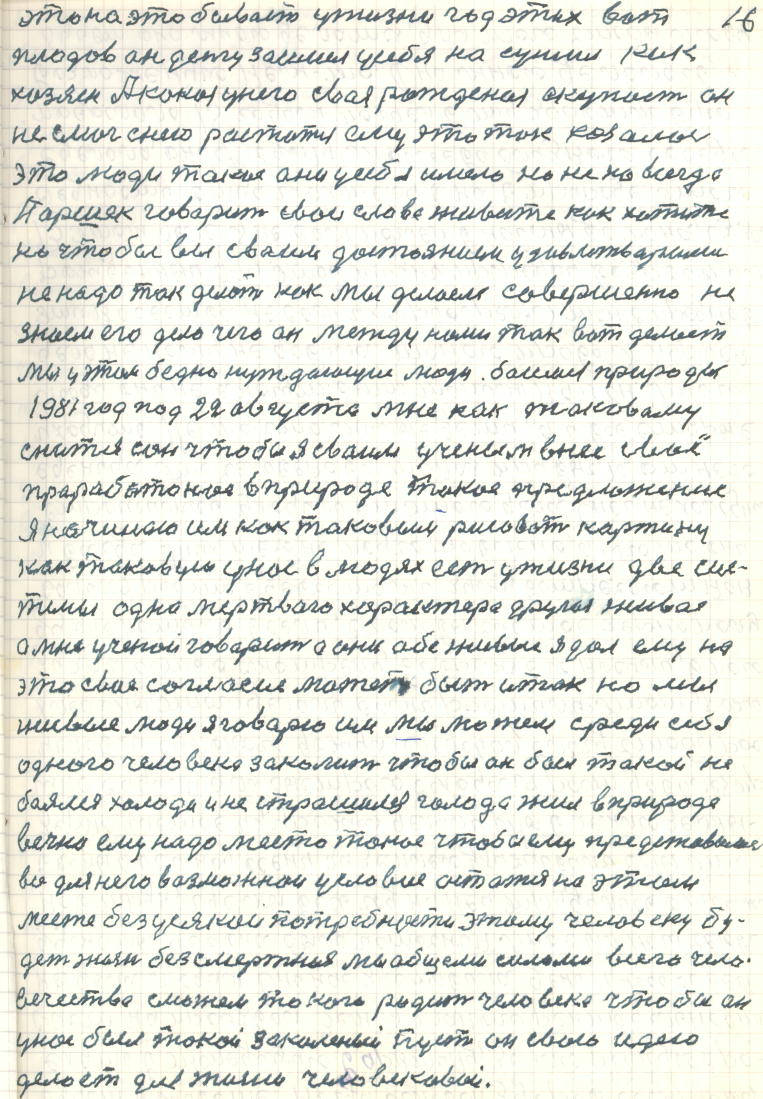 этона это бывает ужизни год этих вот 16
плодов он дету засиел усебя на сушил как
хозяен А кокая унего свая рождения окупост он
не смог снею растоти ему этоток козалос
это люди такое они усебя имело но не на всегда
Паршек говарит свои слова живите как хотите
но чтобы вы сваим достоянием удовлетварили
не надо так делот как мы делаем совершенно не
знаем его дело чего он между нами так вот делает
мы у этом бедно нуждающие люди. боимся природы
1981 год под 22 августа мне как таковому
снится сон чтобы я сваим ученым внес своё
прарабатоное в природе такое предложение
Я начинаю им как таковым рисоват картину
как таковую унас в людях ест ужизни две сис-
тимы одна мертваго характера другая живая
а мне ученой говарит а они обе живые я дал ему на
это свое согласие может быт итак но мы
живые люди я говарю им мы можем среди себя
одного человека заколит чтобы он был такой не
баялся холода и не страшился голода жил в природе
вечно ему надо место такое чтобы ему представила
вы для него возможнои условие остатся на этом
месте без усякой потребности этому человеку бу-
дет жизн безсмертная мы общеми силами всего чело-
вечества сможем такого родит человека чтобы он
унас был такой закаленый пуст он свою идею
делает для жизни человековой.